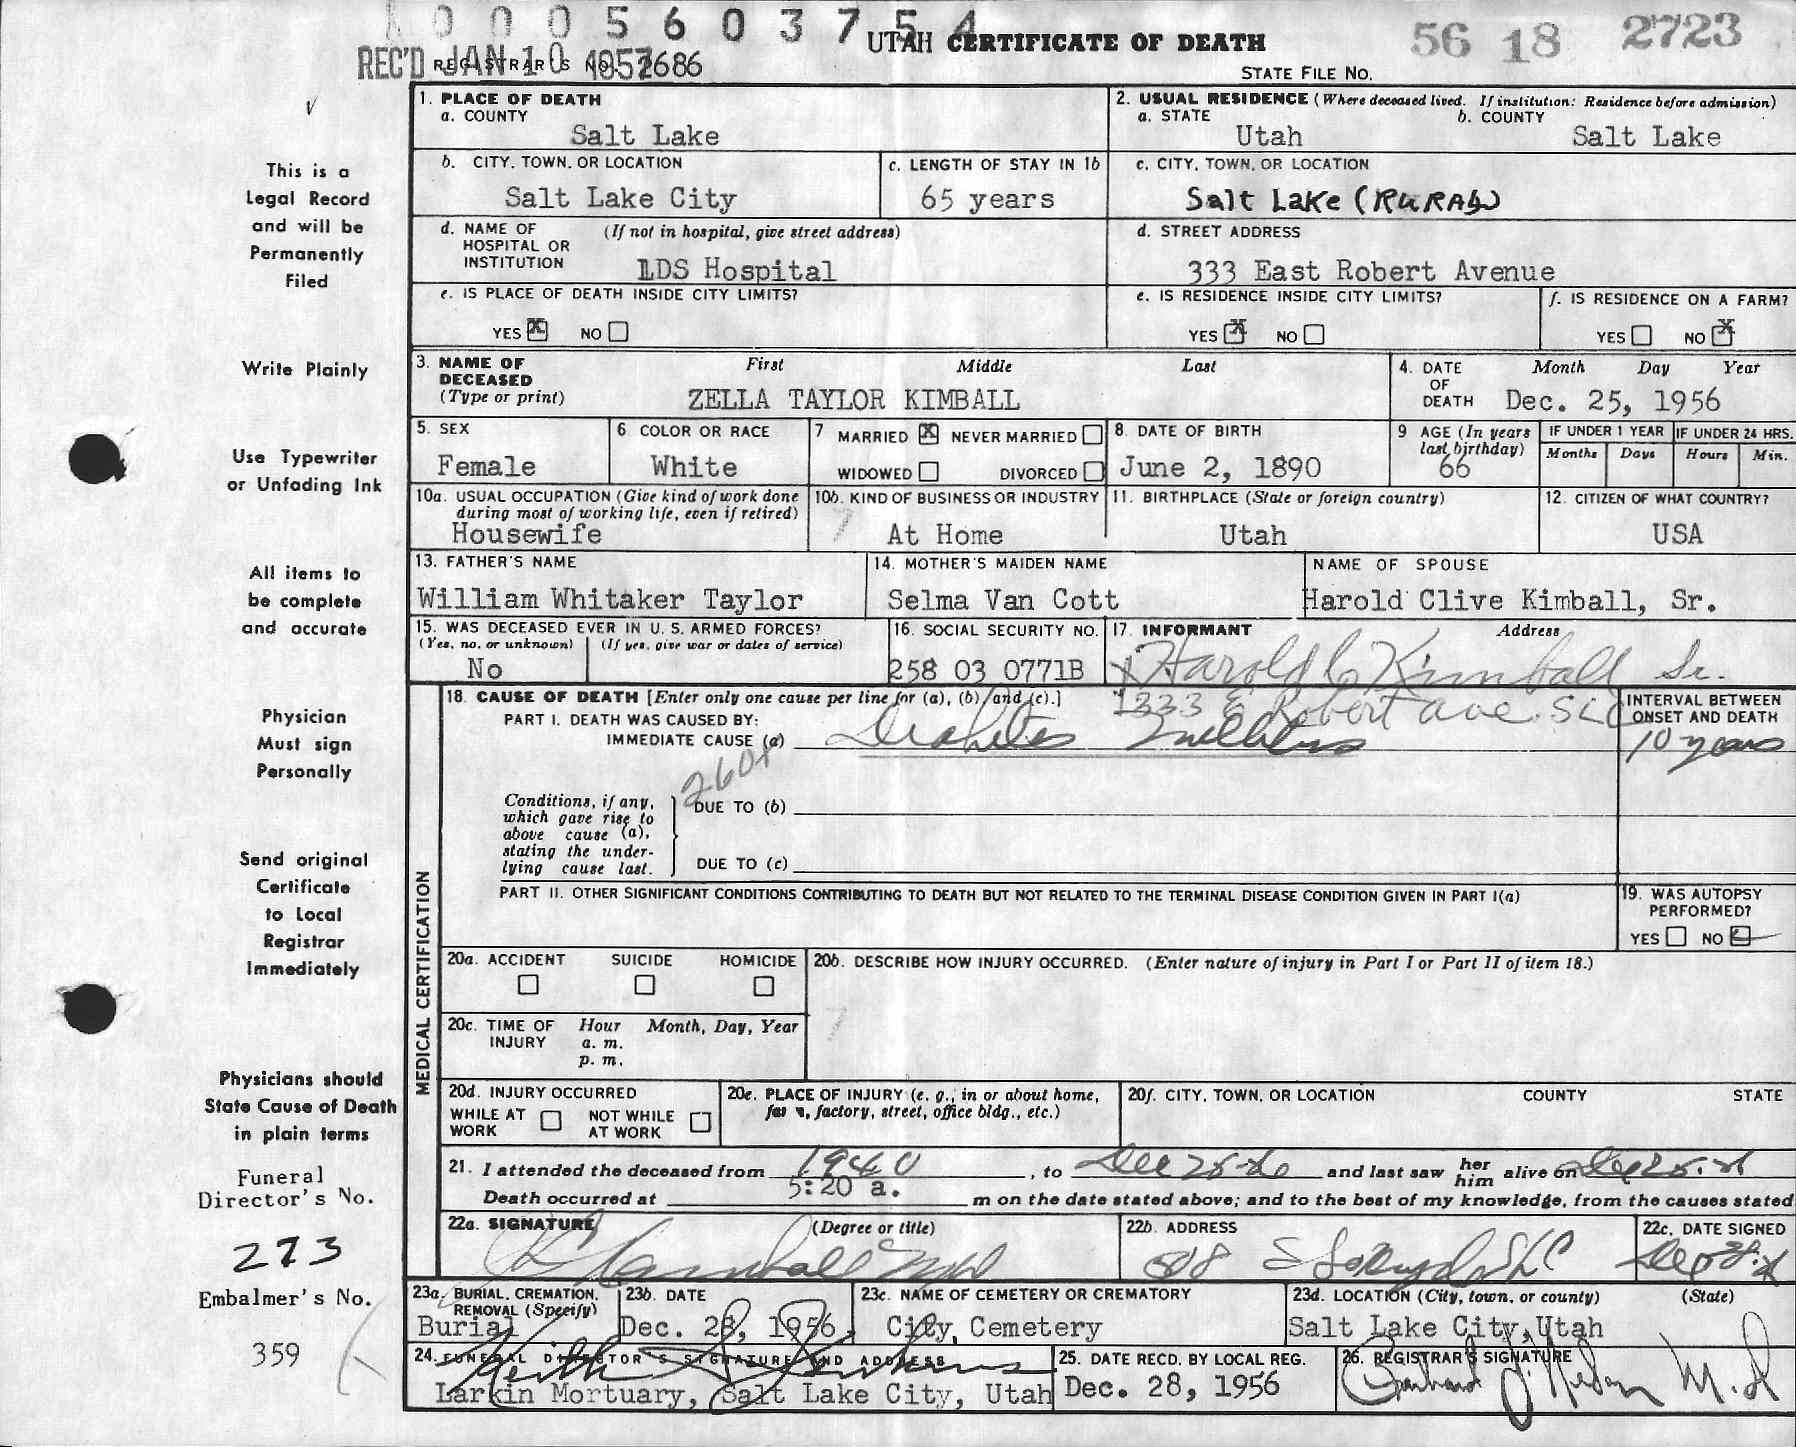 0 0 0 5 6 0 3 7 5 4
UTAH CERTIFICATE OF DEATH
56 18 2723
REC'D JAN 10 1957
REGISTRAR'S NO. 2686
STATE FILE NO.
This is a
Legal Record
and will be
Permanently
Filed
Write Plainly
Use Typewriter
or Unfading Ink
All items to
be complete
and accurate
Physician
Must sign
Personally
Send original
Certificate
to Local
Registrar
Immediately
Physicians should
State Cause of Death
in plain terms
Funeral
Director's No.
273
Embalmer's No.
359
1. PLACE OF DEATH
a. COUNTY
Salt Lake
2. USUAL RESIDENCE (Where deceased lived. If institution: Residence before admission)
a. STATE
Utah
b. COUNTY
Salt Lake
b. CITY, TOWN, OR LOCATION
Salt Lake City
c. LENGTH OF STAY IN 1b
65 years
c. CITY, TOWN, OR LOCATION
Salt Lake (RURAL)
d. NAME OF HOSPITAL OR INSTITUTION
(If not in hospital, give street address)
LDS Hospital
d. STREET ADDRESS
333 East Robert Avenue
e. IS PLACE OF DEATH INSIDE CITY LIMITS?
YES X NO
e. IS RESIDENCE INSIDE CITY LIMITS?
YES X NO
f. IS RESIDENCE ON A FARM?
YES NO X
3. NAME OF DECEASED (Type or print)
First Middle Last
ZELLA TAYLOR KIMBALL
4. DATE OF DEATH
Month Day Year
Dec. 25, 1956
5. SEX
Female
6 COLOR OR RACE
White
7 MARRIED X NEVER MARRIED
WIDOWED DIVORCED
8. DATE OF BIRTH
June 2, 1890
9 AGE (In years last birthday)
66
IF UNDER 1 YEAR
Months Days
IF UNDER 24 HRS.
Hours Min.
10a. USUAL OCCUPATION (Give kind of work done during most of working life, even if retired)
Housewife
10b. KIND OF BUSINESS OR INDUSTRY
At Home
11. BIRTHPLACE (State or foreign country)
Utah
12. CITIZEN OF WHAT COUNTRY?
USA
13. FATHER'S NAME
William Whitaker Taylor
14. MOTHER'S MAIDEN NAME
Selma Van Cott
NAME OF SPOUSE
Harold Clive Kimball, Sr.
15. WAS DECEASED EVER IN U. S. ARMED FORCES?
(Yes, no, or unknown) (If yes, give war or dates of service)
No
16. SOCIAL SECURITY NO.
258 03 0771B
17. INFORMANT Address
X Harold C Kimball Sr.
333 E Robert ave. SLC
MEDICAL CERTIFICATION
18. CAUSE OF DEATH [Enter only one cause per line for (a), (b) and (c).]
PART I. DEATH WAS CAUSED BY:
IMMEDIATE CAUSE (a) Diabetes Mellitus
INTERVAL BETWEEN ONSET AND DEATH
10 years
Conditions, if any, which gave rise to above cause (a), stating the underlying cause last.
DUE TO (b)
DUE TO (c)
PART II. OTHER SIGNIFICANT CONDITIONS CONTRIBUTING TO DEATH BUT NOT RELATED TO THE TERMINAL DISEASE CONDITION GIVEN IN PART I(a)
19. WAS AUTOPSY PERFORMED?
YES NO
20a. ACCIDENT SUICIDE HOMICIDE
20b. DESCRIBE HOW INJURY OCCURRED. (Enter nature of injury in Part I or Part II of item 18.)
20c. TIME OF INJURY
Hour Month, Day, Year
a. m.
p. m.
20d. INJURY OCCURRED
WHILE AT WORK NOT WHILE AT WORK
20e. PLACE OF INJURY (e. g., in or about home, farm, factory, street, office bldg., etc.)
20f. CITY, TOWN, OR LOCATION COUNTY STATE
21. I attended the deceased from 1940, to Dec 25-56 and last saw her him alive on Dec 25.56
Death occurred at 5:20 a. m on the date stated above; and to the best of my knowledge, from the causes stated
22a. SIGNATURE (Degree or title)
22b. ADDRESS
508 E So
22c. DATE SIGNED
23a. BURIAL, CREMATION, REMOVAL (Specify)
Burial
23b. DATE
Dec. 28, 1956
23c. NAME OF CEMETERY OR CREMATORY
City Cemetery
23d. LOCATION (City, town, or county) (State)
Salt Lake City, Utah
24. FUNERAL DIRECTOR'S SIGNATURE AND ADDRESS
Larkin Mortuary, Salt Lake City, Utah
25. DATE RECD. BY LOCAL REG.
Dec. 28, 1956
26. REGISTRAR'S SIGNATURE